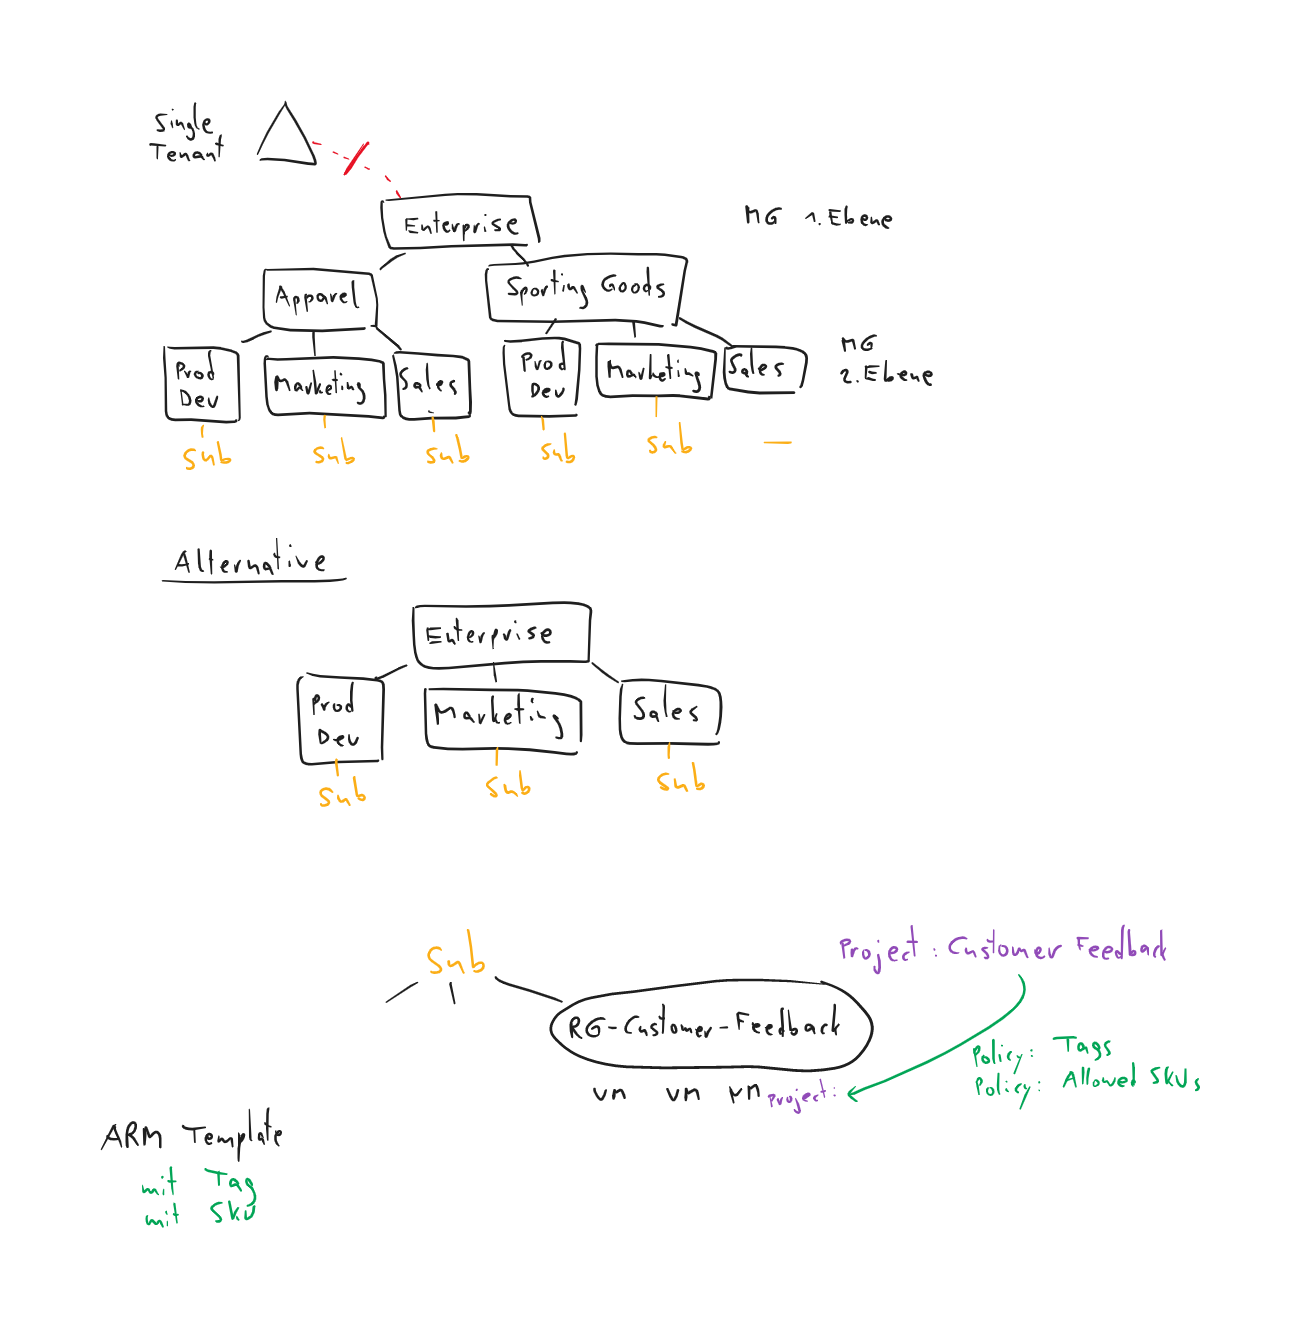 Single
Tenant
Enterprise
MG 1. Ebene
Apparel
Sporting Goods
Prod
Dev
Marketing
Sales
Prod
Dev
Marketing
Sales
MG
2. Ebene
Sub
Sub
Sub
Sub
Sub
—
Alternative
Enterprise
Prod
Dev
Marketing
Sales
Sub
Sub
Sub
Sub
Project: Customer Feedback
RG-Customer-Feedback
Policy: Tags
Policy: Allowed SKUs
VM VM VM Project:
ARM Template
mit Tag
mit SKU